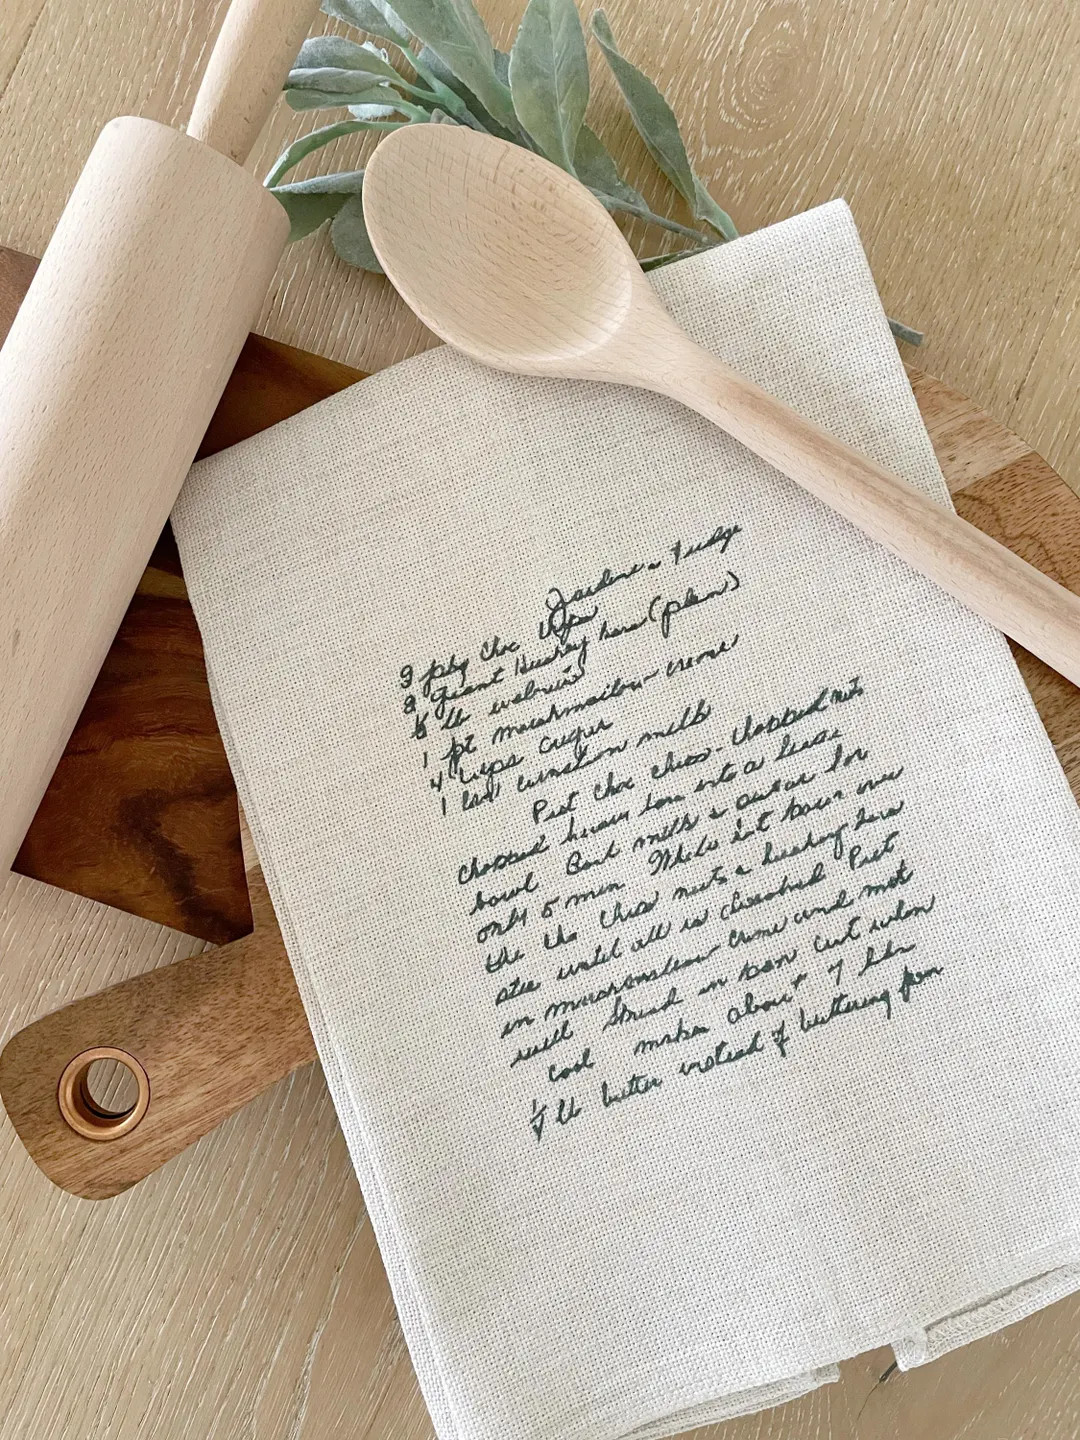 Fudge
3 pkg choc chips
2 Giant Hershey bars (plain)
lb walnuts
1 pt marshmallow creme
4 cups sugar
1 can carnation milk
Put choc chips - chopped nuts
chopped bars into a large
bowl milk & sugar for
only 5 min While hot pour over
the cho chips nuts & hershey bars
stir until all is dissolved Put
in marshmallow creme and
well Spread in pan cut when
cool makes about 7 lbs
1/4 lb butter instead of buttering pan